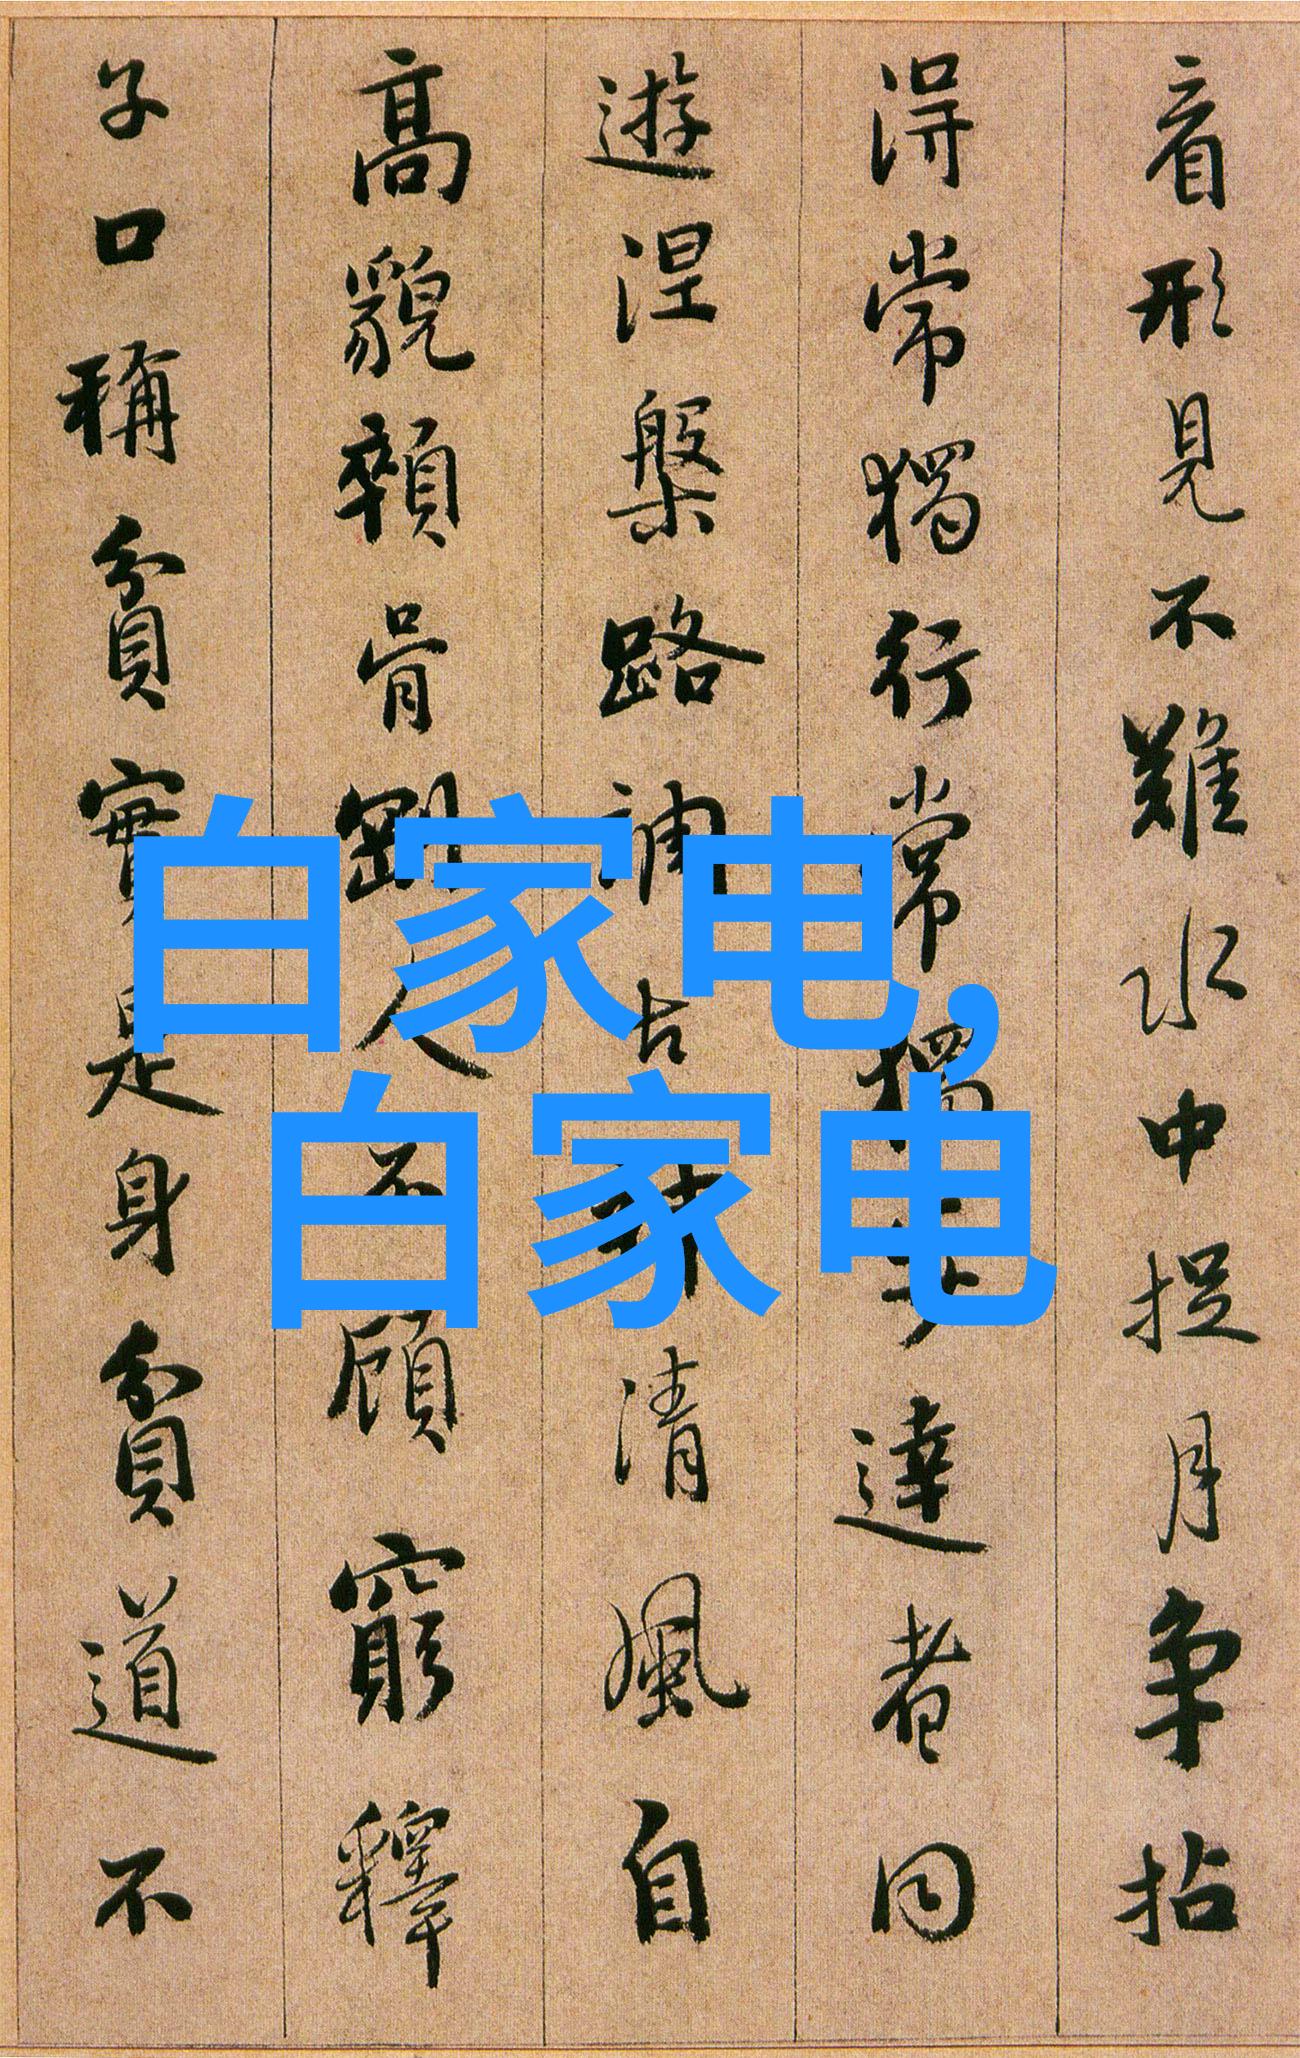 白家电,
白家电
看形見不難水中捉月争拈
得常獨行常獨步達者同
遊涅槃路調古神清風自
高貌顇骨剛人不顧窮釋
子口稱貧實是身貧道不